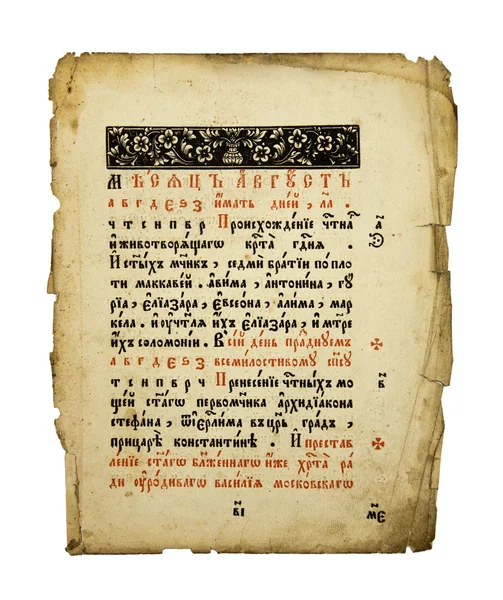 Мѣсѧцъ а҆́вгꙋстъ
а в г д е ѕ з и҆́мать дне́й, л҃а.
ч т с н п в р Происхожде́нїе чⷭ҇тнаⷢ҇
и҆ животворѧ́щагѡ крⷭ҇та̀ гдⷭ҇нѧ.
И҆ ст҃ы́хъ мч҃нкъ, седми̑ бра́тїи по пло
ти маккаве́й. а҆ви́ма, а҆нтони́на, гꙋ
рі́а, є҆лїаза́ра, є҆ѵсео́на, а҆ли́ма, мар
ке́ла. и҆ ᲂу҆чт҃лѧ и҆́хъ є҆лїаза́ра, и҆ мт҃ре
и҆́хъ соломоні́и. В се́й де́нь пра́знꙋемъ
а в г д е ѕ з всемл҇стивомꙋ сп҃сꙋ
т с н п в р ч Пренесе́нїе чⷭ҇тны́хъ мо
ще́й ст҃а́гѡ первомч҃нка а҆рхидїа́кона
стефа́на, ѿ і҆ерⷭ҇ли́ма въ цр҃ь гра́дъ,
при царѐ константи́нѣ. И҆ преста́в
ле́нїе ст҃а́гѡ бл҃же́ннагѡ и҆́же хрⷭ҇та̀ ра́
ди ᲂу҆ро́диваго васи́лїѧ моско́вскагѡ
а҃
в҃
в҃і
м҃е